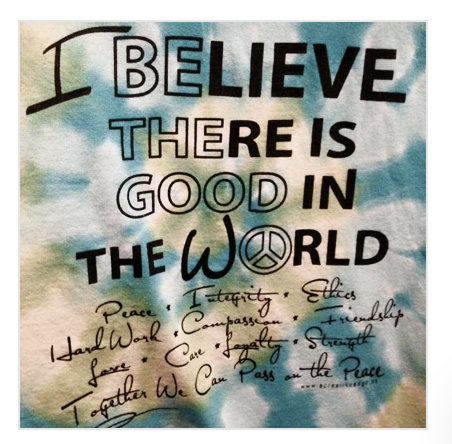 I BELIEVE
THERE IS
GOOD IN
THE WORLD
Peace • Integrity • Ethics
Hard Work • Compassion • Friendship
Love • Care • Loyalty • Strength
Together We Can Pass on the Peace